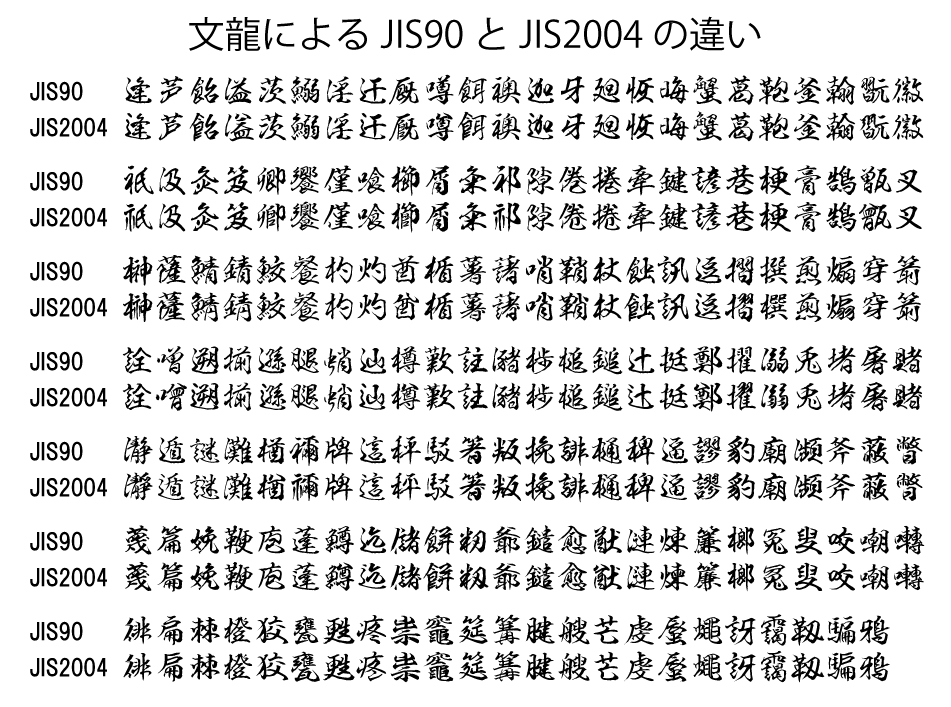 文龍による JIS90 と JIS2004 の違い
JIS90 逢芦飴溢茨鰯淫迂厩噂餌襖迦牙廻恢晦蟹葛鞄釜翰翫徽
JIS2004 逢芦飴溢茨鰯淫迂厩噂餌襖迦牙廻恢晦蟹葛鞄釜翰翫徽
JIS90 祇汲灸笈卿饗僅喰櫛屑粂祁隙倦捲牽鍵諺巷梗膏鵠甑叉
JIS2004 祇汲灸笈卿饗僅喰櫛屑粂祁隙倦捲牽鍵諺巷梗膏鵠甑叉
JIS90 榊薩鯖錆鮫餐杓灼酋楯薯藷哨鞘杖蝕訊逗摺撰煎煽穿箭
JIS2004 榊薩鯖錆鮫餐杓灼酋楯薯藷哨鞘杖蝕訊逗摺撰煎煽穿箭
JIS90 詮噌遡揃遜腿蛸辿樽歎註瀦捗槌鎚辻挺鄭擢溺兎堵屠賭
JIS2004 詮噌遡揃遜腿蛸辿樽歎註瀦捗槌鎚辻挺鄭擢溺兎堵屠賭
JIS90 瀞遁謎灘楢禰牌這秤駁箸叛挽誹樋稗逼謬豹廟瀕斧蔽瞥
JIS2004 瀞遁謎灘楢禰牌這秤駁箸叛挽誹樋稗逼謬豹廟瀕斧蔽瞥
JIS90 蔑篇娩鞭庖蓬鱒迄儲餅籾爺鑓愈猷漣煉簾榔冤叟咬嘲囀
JIS2004 蔑篇娩鞭庖蓬鱒迄儲餅籾爺鑓愈猷漣煉簾榔冤叟咬嘲囀
JIS90 徘扁棘橙狡甕甦疼祟竈筵篝腱艘芒虔蜃蠅訝靄靱騙鴉
JIS2004 徘扁棘橙狡甕甦疼祟竈筵篝腱艘芒虔蜃蠅訝靄靱騙鴉